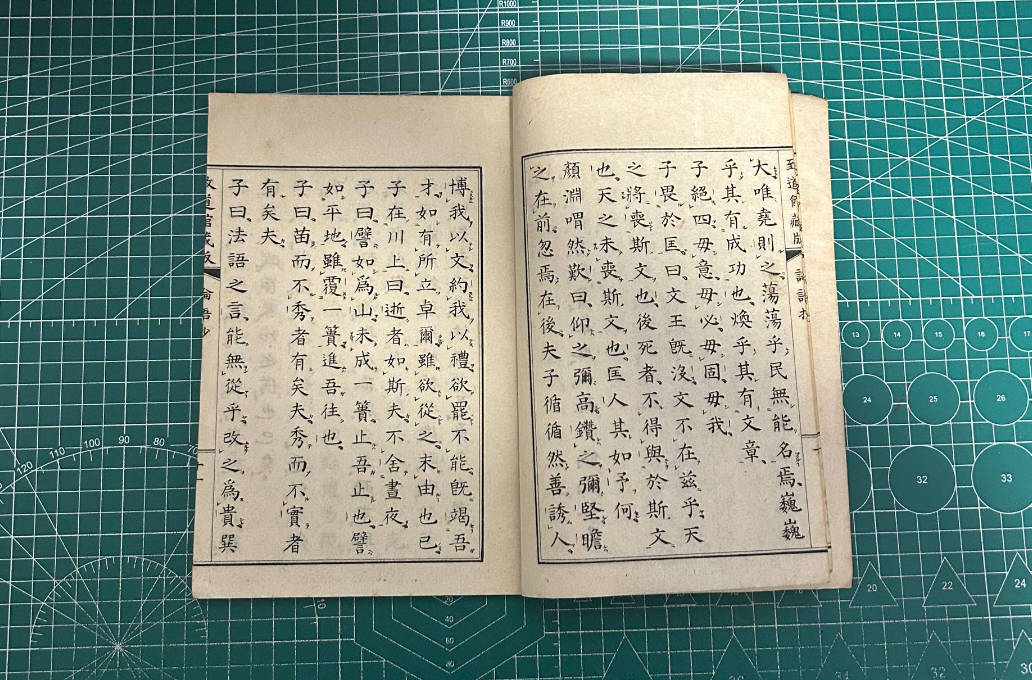 致道館藏版
大唯堯則之蕩蕩乎民無能名焉巍巍
乎其有成功也煥乎其有文章
子絕四毋意毋必毋固毋我
子畏於匡曰文王旣沒文不在茲乎天
之將喪斯文也後死者不得與於斯文
也天之未喪斯文也匡人其如予何
顏淵喟然歎曰仰之彌高鑽之彌堅瞻
之在前忽焉在後夫子循循然善誘人
博我以文約我以禮欲罷不能旣竭吾
才如有所立卓爾雖欲從之末由也已
子在川上曰逝者如斯夫不舍晝夜
子曰譬如爲山未成一簣止吾止也譬
如平地雖覆一簣進吾往也
子曰苗而不秀者有矣夫秀而不實者
有矣夫
子曰法語之言能無從乎改之爲貴巽
論語抄
R1000
R900
R800
R700
R600
13
14
15
16
17
24
25
26
32
33
120
110
100
90
80
70
20
22
24
20
40
60
80
32
30